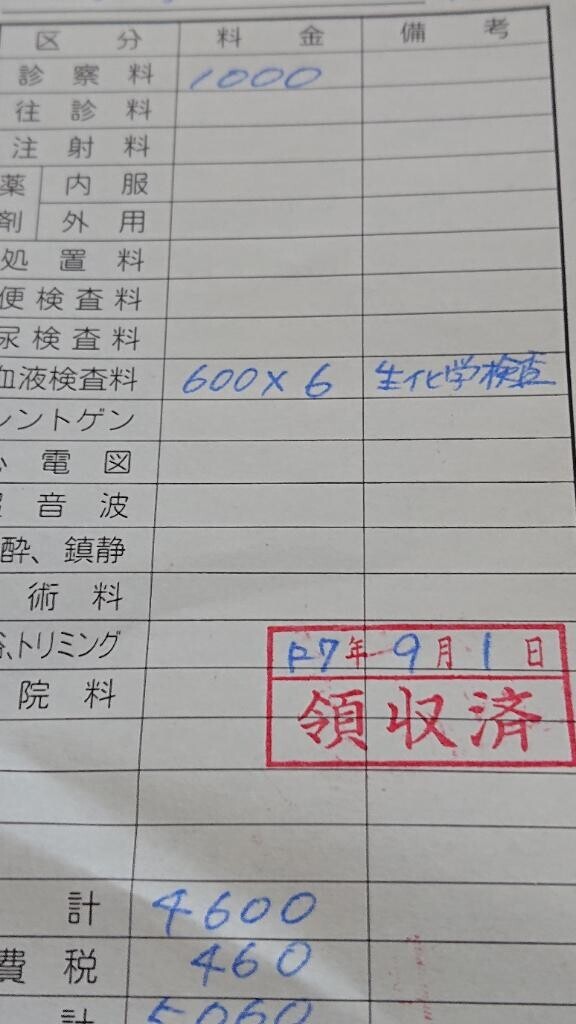 区 分 料 金 備 考
診 察 料 1000
往 診 料
注 射 料
薬 内 服
剤 外 用
処 置 料
便 検 査 料
尿 検 査 料
血液検査料 600×6 生化学検査
レントゲン
心 電 図
音 波
酔、鎮静
術 料
、トリミング
院 料
R7年 9月 1日
領収済
計 4600
費 税 460
計 5060